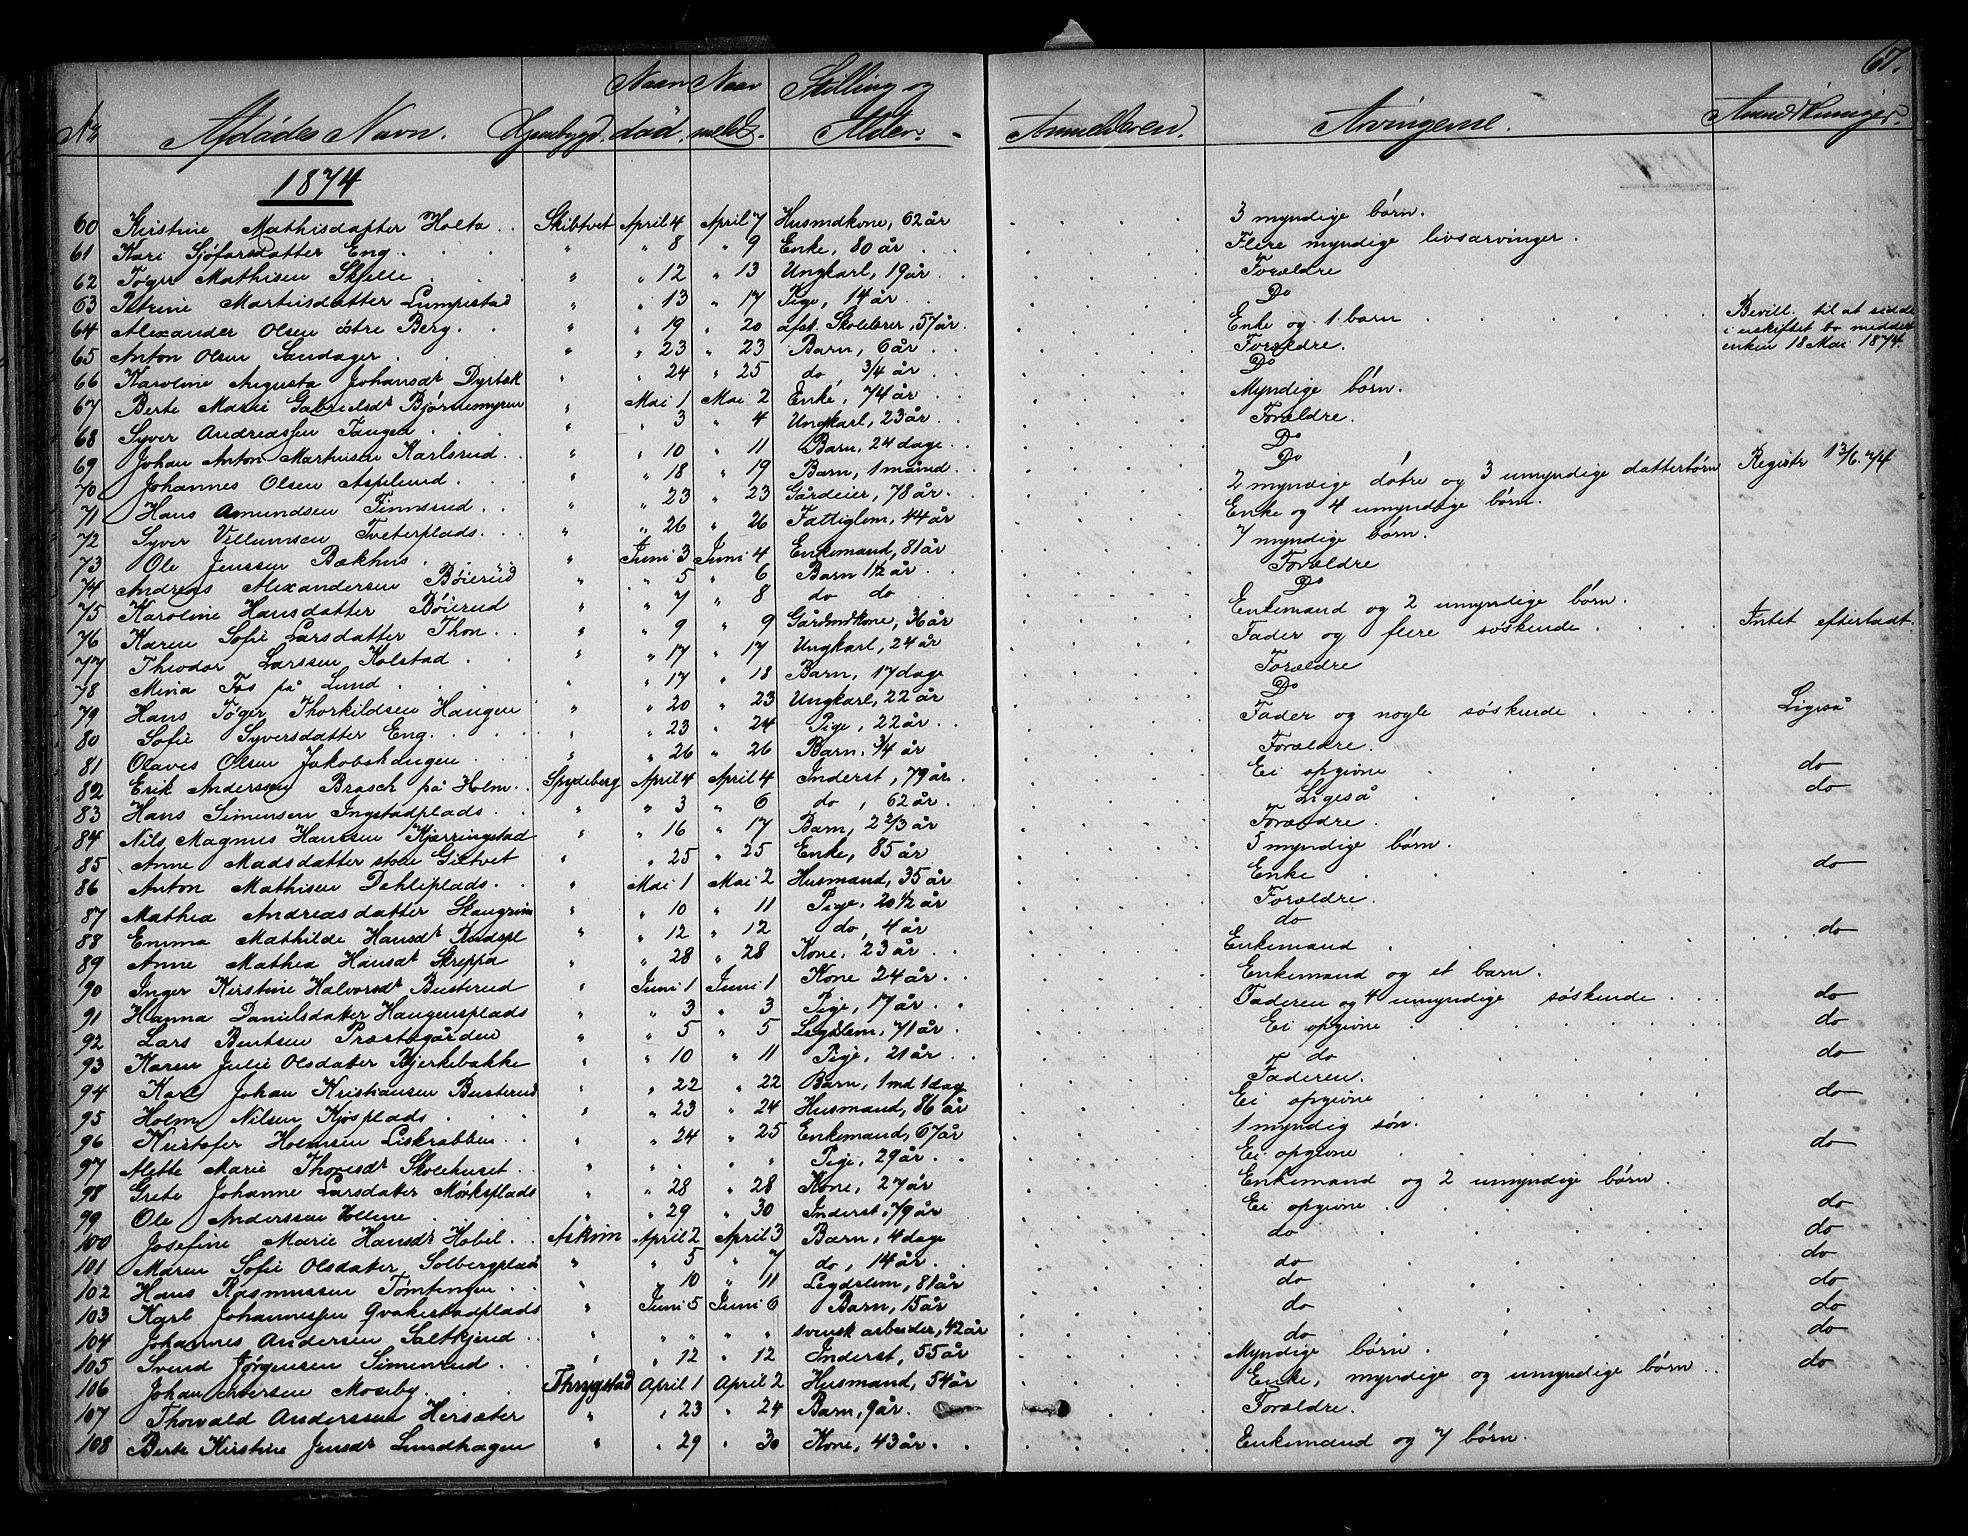 67.
No Afdødes Navn. Hjembygd. Naar død. Naar meldt. Stilling og Alder. Anmelderen. Arvingerne. Anmærkninger.
1874
60 Kirstine Mathisdatter Holta Skibtvet April 4 April 7 Husmdkone, 62 år 3 myndige børn.
61 Kari Sjøfarsdatter Eng " " 8 " 9 Enke, 80 år Flere myndige livsarvinger.
62 Tøger Mathisen Skjelle " " 12 " 13 Ungkarl, 19 år Forældre
63 Petrine Martinsdatter Lumpestad " " 13 " 17 Pige, 14 år Do
64 Alexander Olsen østre Berg. " " 19 " 20 afst. Skolelærer, 57 år. Enke og 1 barn Bevill. til at sidde i uskiftet bo meddelt enken 18 Mai 1874.
65 Anton Olsen Sandager " " 23 " 23 Barn, 6 år Forældre.
66 Karoline Augusta Johansdt Dyrbæk " " 24 " 25 do, 3/4 år Do
67 Berte Marie Gabrielsdt Bjørnemyren " Mai 1 Mai 2 Enke, 74 år Myndige børn.
68 Syver Andreassen Tangen " " 3 " 4 Ungkarl, 23 år Forældre.
69 Johan Anton Martinsen Karlsrud " " 10 " 11 Barn, 24 dage Do
70 Johannes Olsen Asplund " " 18 " 19 Barn, 1 månd Do
71 Hans Amundsen Finnsrud " " 23 " 23 Gårdeier, 78 år. 2 myndige døtre og 3 umyndige datterbørn Registr 13/6.74
72 Syver Villumsen Tveterplads " " 26 " 26 Fattiglem, 44 år Enke og 4 umyndige børn.
73 Ole Jenssen Bækhus " Juni 3 Juni 4 Enkemand, 81 år 7 myndige børn.
74 Andreas Alexandersen Bøierud " " 5 " 6 Barn 1 1/2 år Forældre
75 Karoline Hansdatter Bøierud " " 7 " 8 do do Do
76 Karen Sofie Larsdatter Thon " " 9 " 9 Gårdmdkone, 36 år Enkemand og 2 umyndige børn.
77 Theodor Larssen Kolstad " " 17 " 17 Ungkarl, 24 år Fader og flere søskende Intet efterladt.
78 Mina Fos på Lund " " 17 " 18 Barn, 17 dage Forældre
79 Hans Tøger Thorkildsen Haugen " " 20 " 23 Ungkarl, 22 år Do
80 Sofie Syversdatter Eng. " " 23 " 24 Pige, 22 år Fader og nogle søskende Ligeså
81 Olaves Olsen Jakobshaugen " " 26 " 26 Barn, 3/4 år Forældre.
82 Erik Anderssen Brasch på Holm Spydeberg April 4 April 4 Inderst, 79 år Ei opgivne do
83 Hans Simensen Ingstadplads " " 3 " 6 do, 62 år Ligeså do
84 Nils Magnus Hanssen Kjærringstad " " 16 " 17 Barn, 2 2/3 år Forældre.
85 Anne Madsdatter store Gietvet " " 25 " 25 Enke, 85 år 5 myndige børn.
86 Anton Mathisen Dehliplads " Mai 1 Mai 2 Husmand, 35 år Enke do
87 Mathea Andreasdatter Skaugrim " " 10 " 11 Pige, 20 1/2 år Forældre.
88 Emma Mathilde Hansdt Rudspl " " 12 " 12 do, 4 år do
89 Anne Mathea Hansdt Skreppa " " 28 " 28 Kone, 23 år Enkemand do
90 Inger Kirstine Halvorsdt Busterud " Juni 1 Juni 1 Kone 24 år Enkemand og et barn.
91 Hanna Danielsdatter Haugensplads " " 3 " 3 Pige, 17 år Faderen og 4 umyndige søskende do
92 Lars Bentsen Præstegården " " 5 " 5 Legdslem, 71 år Ei opgivne do
93 Karen Julie Olsdatter Bjerkebakke " " 10 " 11 Pige, 21 år do do
94 Karl Johan Kristiansen Busterud " " 22 " 22 Barn, 1 md 1 dag Faderen.
95 Holm Nilsen Kjosplads " " 23 " 24 Husmand, 86 år Ei opgivne do
96 Kristofer Holmsen Liskrabben " " 24 " 25 Enkemand, 67 år 1 myndig søn.
97 Alette Marie Thoresdt Skolehuset " " " " " Pige, 29 år Ei opgivne do
98 Grete Johanne Larsdatter Mørksplads " " 28 " 28 Kone, 27 år Enkemand og 2 umyndige børn.
99 Ole Anderssen Hollene " " 29 " 30 Inderst, 79 år Ei opgivne do
100 Josefine Marie Hansdt Hobel Askim April 2 April 3 Barn, 4 dage do do
101 Maren Sofie Olsdatter Solbergplads " " 5 " 7 do, 14 år do do
102 Hans Rasmussen Tømtengen " " 10 " 11 Legdslem, 81 år do do
103 Karl Johannessen Gvakestadplads " Juni 5 Juni 6 Barn, 15 år do do
104 Johannes Andersen Saltkjend " " " " " svensk arbeider, 42 år do do
105 Svend Jørgensen Simenrud " " 12 " 12 Inderst, 55 år Myndige børn. do
106 Johan Iversen Moseby Thrygstad April 1 April 2 Husmand, 54 år Enke, myndige og umyndige børn
107 Thorvald Anderssen Hersæter " " 23 " 24 Barn, 9 år. Forældre.
108 Berte Kirstine Jensdt Lundhagen " " 29 " 30 Kone, 43 år. Enkemand og 7 børn.